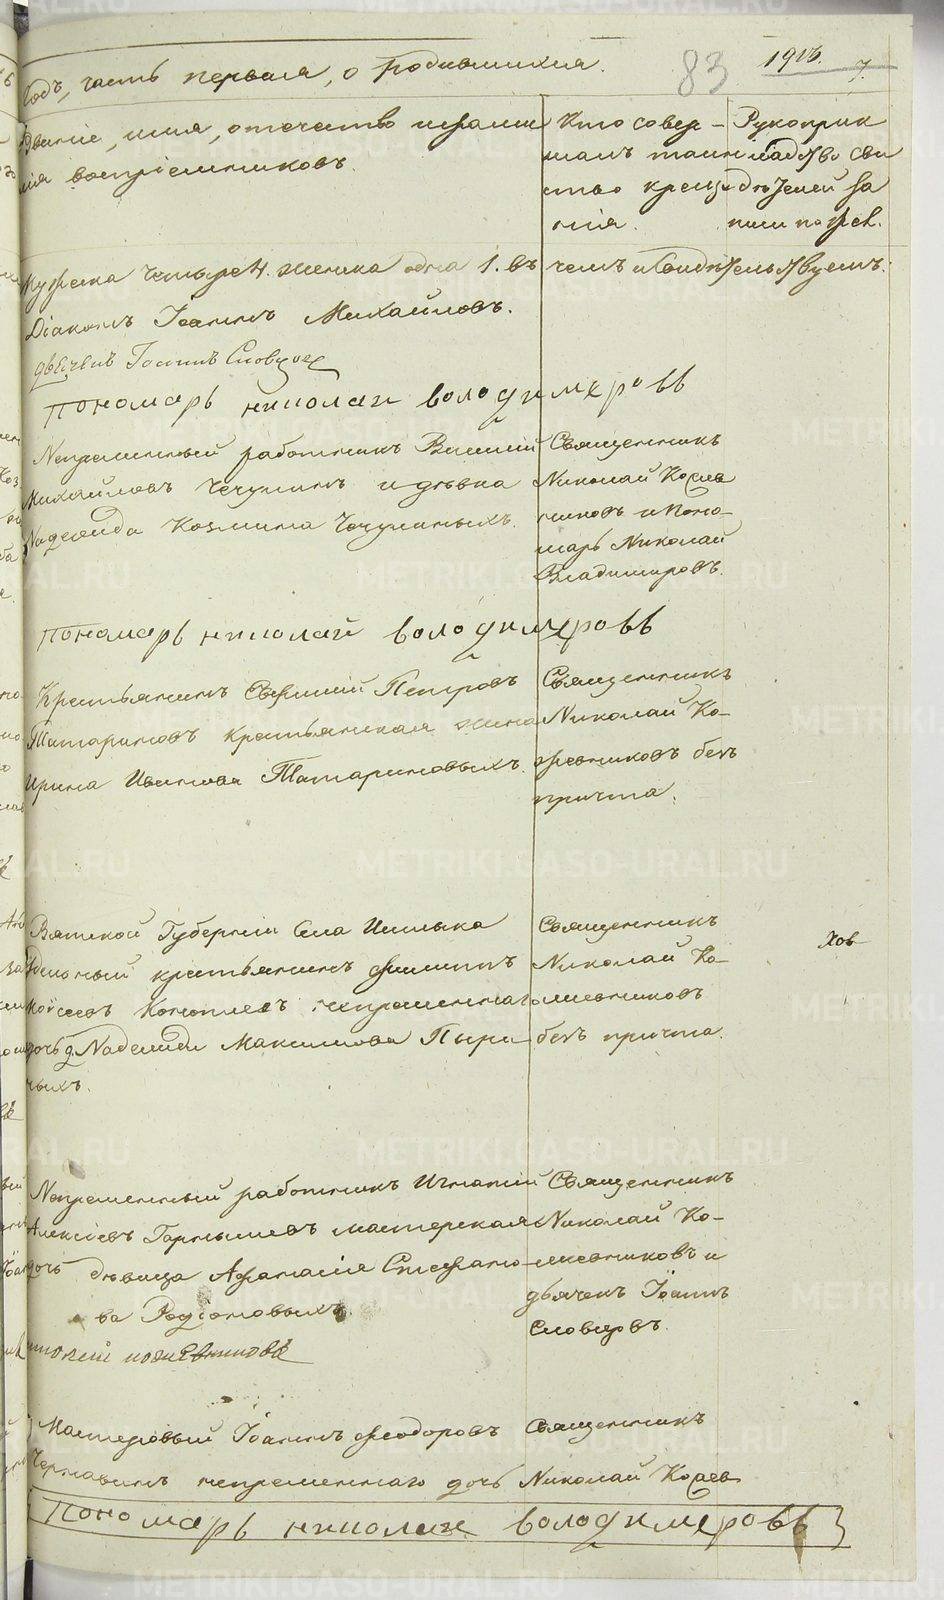 годъ, часть первая, о родившихся.
83
7.
Званіе, имя, отечество и фами
лія воспріемниковъ.
Кто совер-
шалъ таин
ство креще
нія.
Рукоприк
ладство сви
дѣтелей за
писи по жел.
Мужеска четыре 4. женска одна 1. въ чемъ и свидѣтельствуемъ:
Діаконъ Іоаннъ Михайловъ.
дьячекъ Іоаннъ Словцовъ
пономарь николай володимеровъ
Непременный работникъ Василий
Михайловъ Чечулинъ и девка
Надежда Козмина Чечулиныхъ.
Священникъ
Николай Кожев
никовъ и поно-
марь Николай
Владимировъ.
пономарь николай володимеровъ
Крестьянинъ Петровъ
Татариновъ крестьянская жена
Ирина Иванова Татариновыхъ.
Священникъ
Николай Ко-
жевниковъ безъ
причта.
Вятской Губерніи Села
Удельный крестьянинъ Филиппъ
Моисеевъ непременнаго
дочь д. Надежда Максимова
ныхъ.
Священникъ
Николай Ко-
жевниковъ
безъ причта.
Хов
Непременный работникъ Игнатій
Алексіевъ мастерская
дочь девица Афанасія Стефано-
ва Родіоновыхъ.
Священникъ
Николай Ко-
жевниковъ и
дьячекъ Іоаннъ
Словцовъ.
кожевниковъ
Мастеровый Іоаннъ Феодоровъ
Чернавинъ непременнаго дочь
Священникъ
Николай Кожев
пономарь николай володимеровъ
METRIKI.GASO-URAL.RU